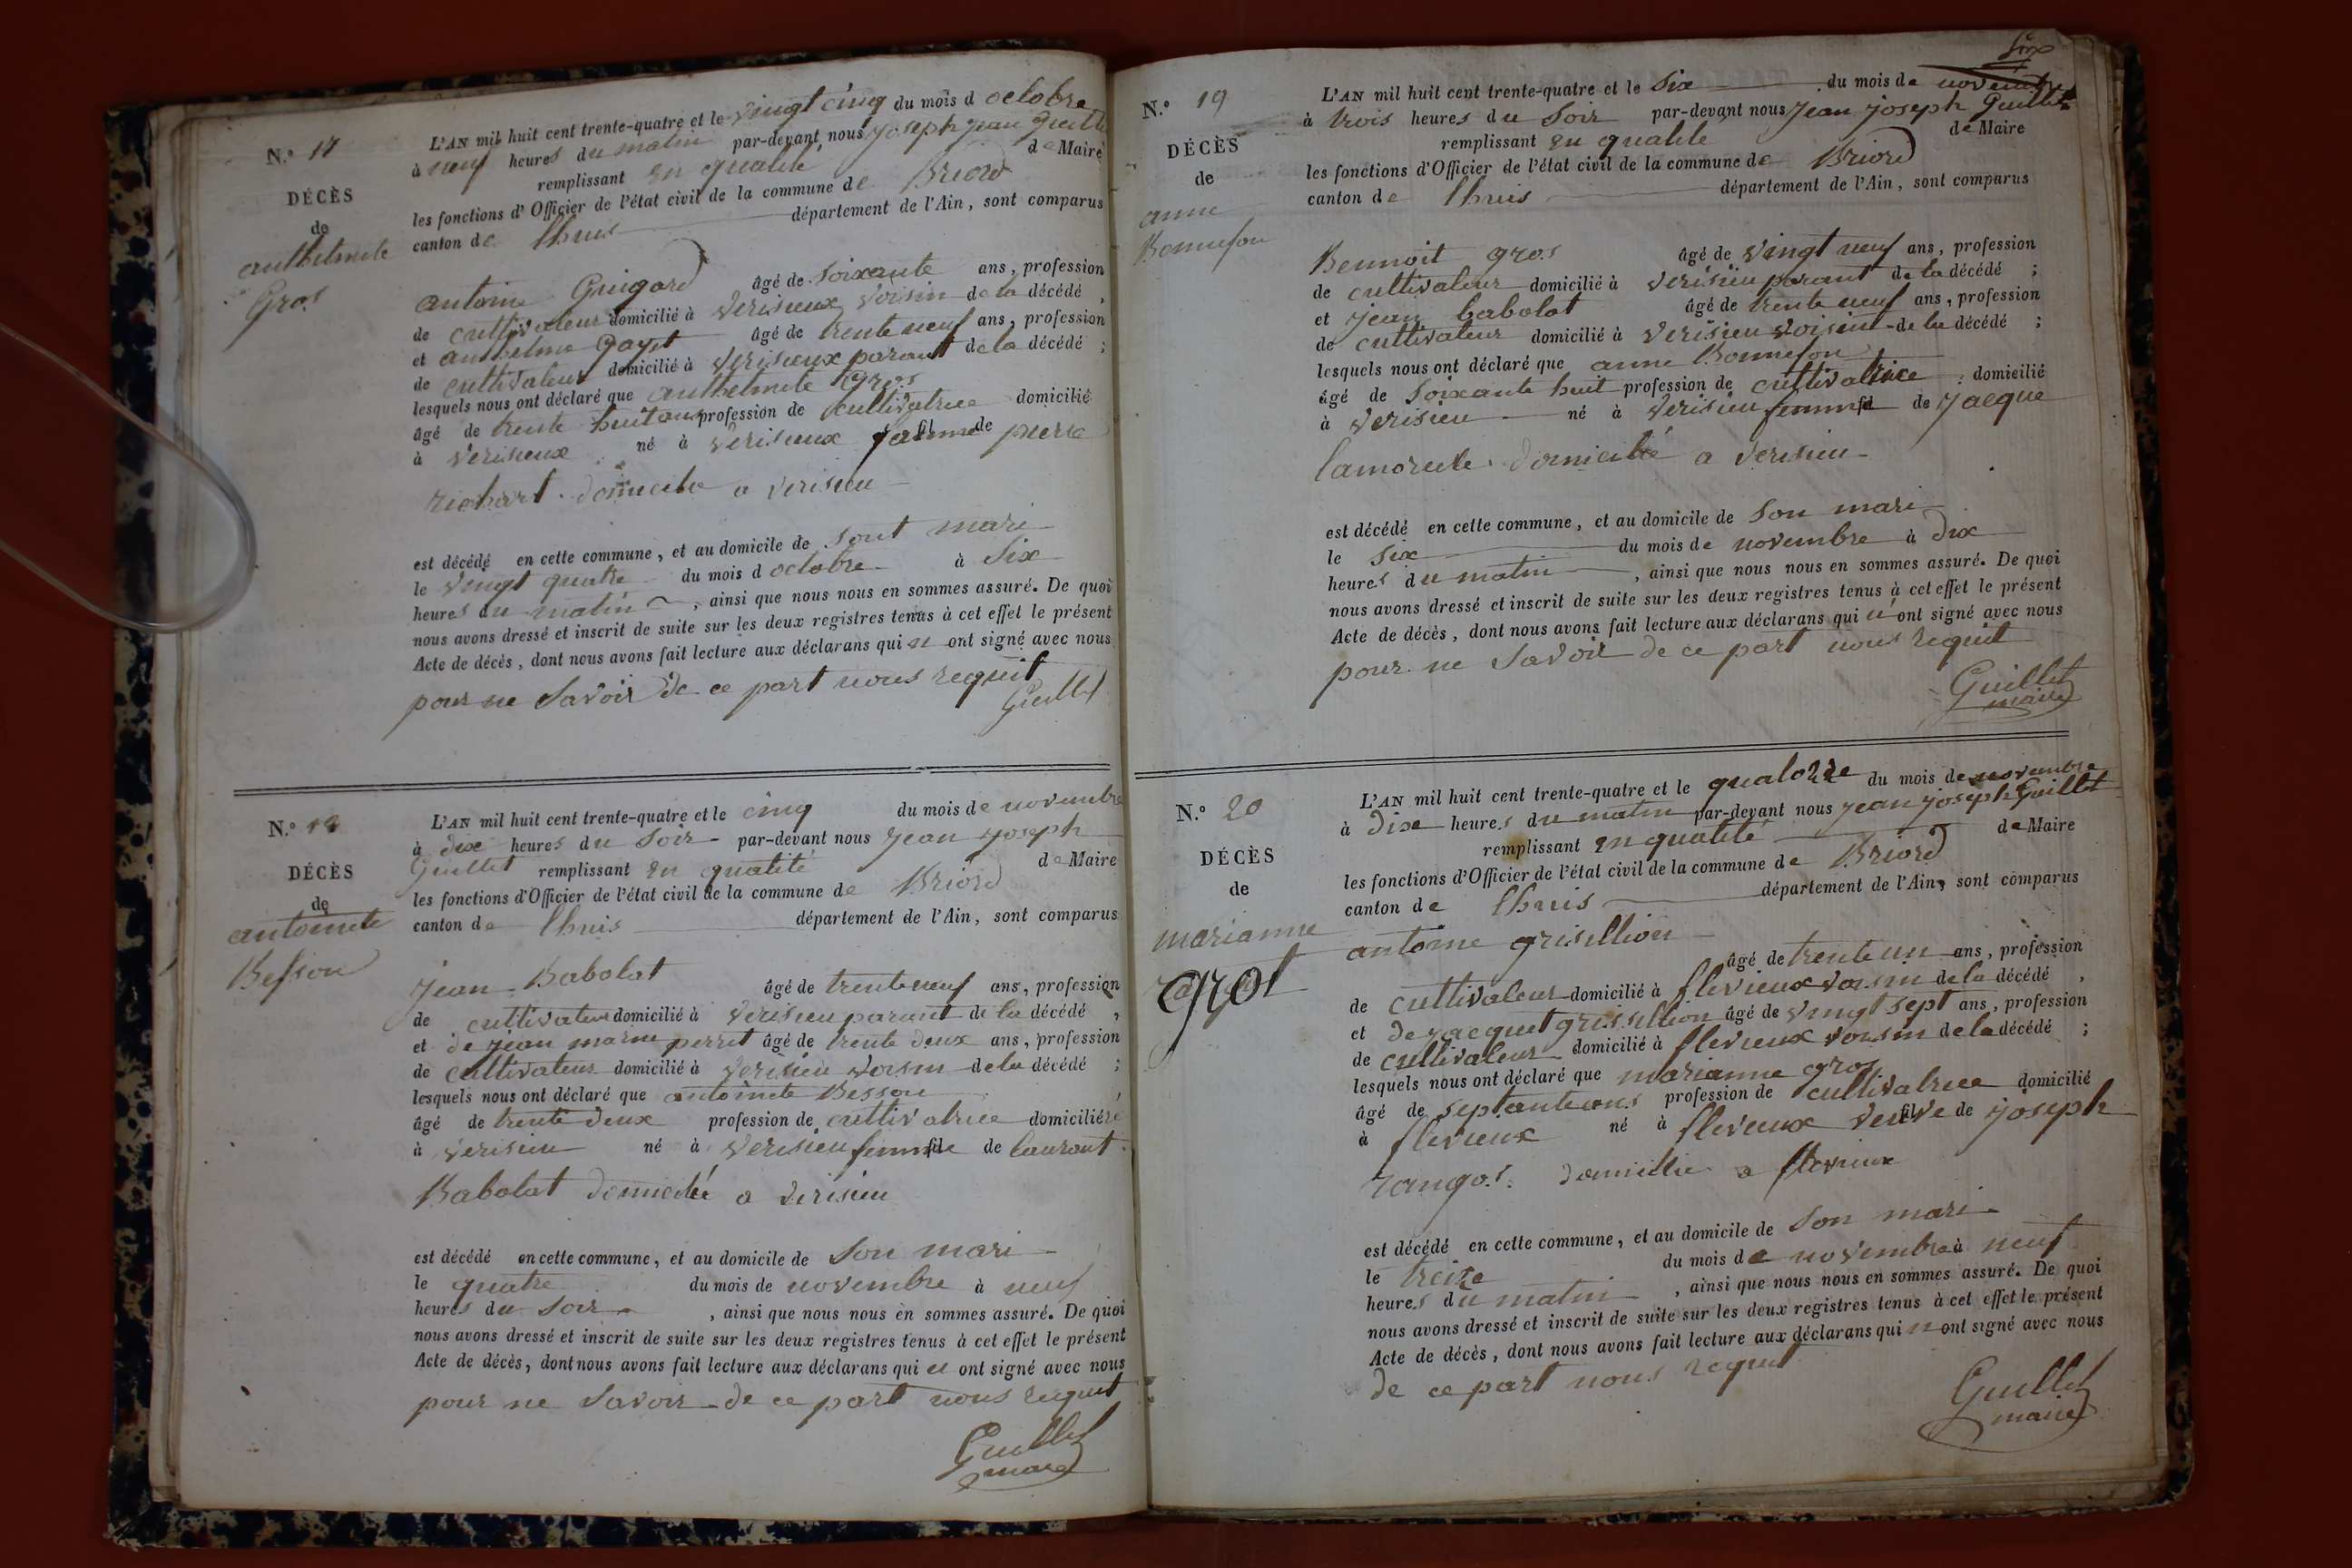 N.º 17
DÉCÈS
de
anthelmete
Gros
L'AN mil huit cent trente-quatre et le vingt cinq du mois d octobre
à neuf heures du matin par-devant nous joseph jean Guillet
remplissant en qualité de Maire
les fonctions d'Officier de l'état civil de la commune de Briord
canton de lhuis département de l'Ain, sont comparus
antoine Guigard âgé de soixante ans, profession
de cultivateur domicilié à verisieux voisin de la décédé,
et anthelme gayet âgé de trente neuf ans, profession
de cultivateur domicilié à verisieux parant de la décédé ;
lesquels nous ont déclaré que anthelmete Gros
âgé de trente huit ans profession de cultivatrice domicilié
à verisieux né à verisieux famme fil de pierre
richart domicile a verisieu
est décédé en cette commune, et au domicile de sont mari
le vingt quatre du mois d octobre à six
heures du matin, ainsi que nous nous en sommes assuré. De quoi
nous avons dressé et inscrit de suite sur les deux registres tenus à cet effet le présent
Acte de décès, dont nous avons fait lecture aux déclarans qui n ont signé avec nous
pour ne savoir de ce part nous requit
Guillet
N.º 18
DÉCÈS
de
antoinete
Besson
L'AN mil huit cent trente-quatre et le cinq du mois de novembre
à dix heures du soir par-devant nous jean joseph
Guillet remplissant en qualité de Maire
les fonctions d'Officier de l'état civil de la commune de Briord
canton de lhuis département de l'Ain, sont comparus
jean Babolat âgé de trente neuf ans, profession
de cultivateur domicilié à verisieu parant de la décédé,
et de jean marie perret âgé de trente deux ans, profession
de cultivateur domicilié à verisieu voisin de la décédé ;
lesquels nous ont déclaré que antoinete Besson
âgé de trente deux profession de cultivatrice domicilié
à verisieu né à verisieu femme fil de laurant
Babolat domicilié a verisieu
est décédé en cette commune, et au domicile de son mari
le quatre du mois de novembre à neuf
heures du soir, ainsi que nous nous en sommes assuré. De quoi
nous avons dressé et inscrit de suite sur les deux registres tenus à cet effet le présent
Acte de décès, dont nous avons fait lecture aux déclarans qui n ont signé avec nous
pour ne savoir de ce part nous requit
Guillet
maire
N.º 19
DÉCÈS
de
anne
Bonnefon
L'AN mil huit cent trente-quatre et le six du mois de novembre
à trois heures du soir par-devant nous jean joseph Guillet
remplissant en qualité de Maire
les fonctions d'Officier de l'état civil de la commune de Briord
canton de lhuis département de l'Ain, sont comparus
Bennoit gros âgé de vingt neuf ans, profession
de cultivateur domicilié à verisieu parant de la décédé ;
et jean babolat âgé de trente neuf ans, profession
de cultivateur domicilié à verisieu voisint de la décédé ;
lesquels nous ont déclaré que anne Bonnefon
âgé de soixante huit profession de cultivatrice domicilié
à verisieu né à verisieu femme fil de jacque
lamorete domicilié a verisieu
est décédé en cette commune, et au domicile de son mari
le six du mois de novembre à dix
heures du matin, ainsi que nous nous en sommes assuré. De quoi
nous avons dressé et inscrit de suite sur les deux registres tenus à cet effet le présent
Acte de décès, dont nous avons fait lecture aux déclarans qui n'ont signé avec nous
pour ne savoir de ce part nous requit
Guillet
maire
N.º 20
DÉCÈS
de
marianne
grot
L'AN mil huit cent trente-quatre et le quatorze du mois de novembre
à dixe heures du matin par-devant nous jean joseph Guillet
remplissant en qualité de Maire
les fonctions d'Officier de l'état civil de la commune de Briord
canton de lhuis département de l'Ain, sont comparus
antoine grisellion âgé de trente un ans, profession
de cultivateur domicilié à flevieux voisin de la décédé,
et de jacquet grisellion âgé de vingt sept ans, profession
de cultivateur domicilié à flevieux voisin de la décédé ;
lesquels nous ont déclaré que marianne gros
âgé de septante ans profession de cultivatrice domicilié
à flevieux né à flevieux veuve fil de joseph
rangos domicillie a flevieux
est décédé en cette commune, et au domicile de son mari
le treize du mois de novembre à neuf
heures du matin, ainsi que nous nous en sommes assuré. De quoi
nous avons dressé et inscrit de suite sur les deux registres tenus à cet effet le présent
Acte de décès, dont nous avons fait lecture aux déclarans qui n ont signé avec nous
de ce part nous requit
Guillet
maire